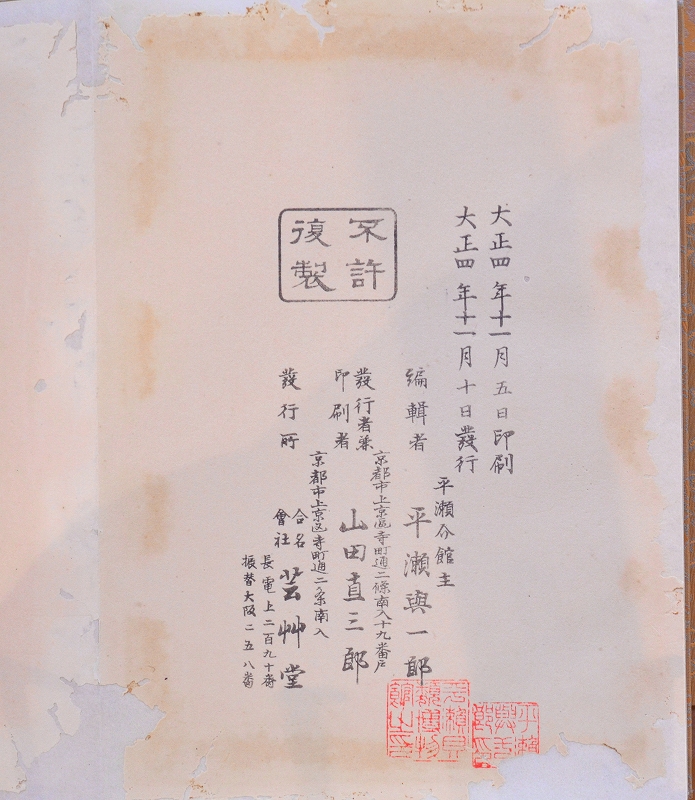 大正四年十一月五日印刷
大正四年十一月十日發行
平瀬介館主
編輯者 平瀬與一郎
京都市上京區寺町通二條南入十九番戶
發行者兼
印刷者 山田直三郎
京都市上京区寺町通二条南入
發行所 合名會社 芸艸堂
長電上二百九十番
振替大阪二五八番
不許
復製